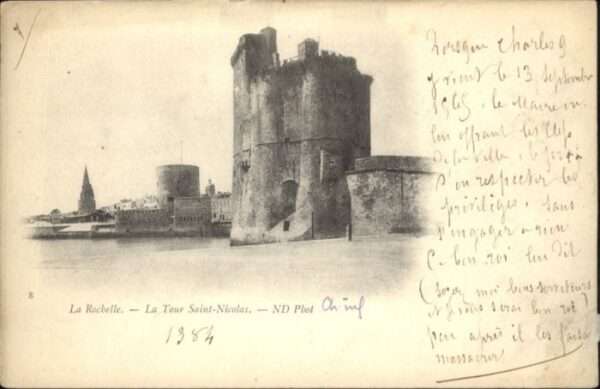 Lorsque Charles 9
y vient le 13 Septembre
1565, le Maire en
lui offrant les Clefs
de la ville, le prie
d'en respecter les
privilèges, sans
s'engager à rien
Ce bon roi lui dit
(soyez moi bons serviteurs
et je vous serai bon roi)
peu après il les faisait
massacrer
8
La Rochelle. — La Tour Saint-Nicolas. — ND Phot
1384